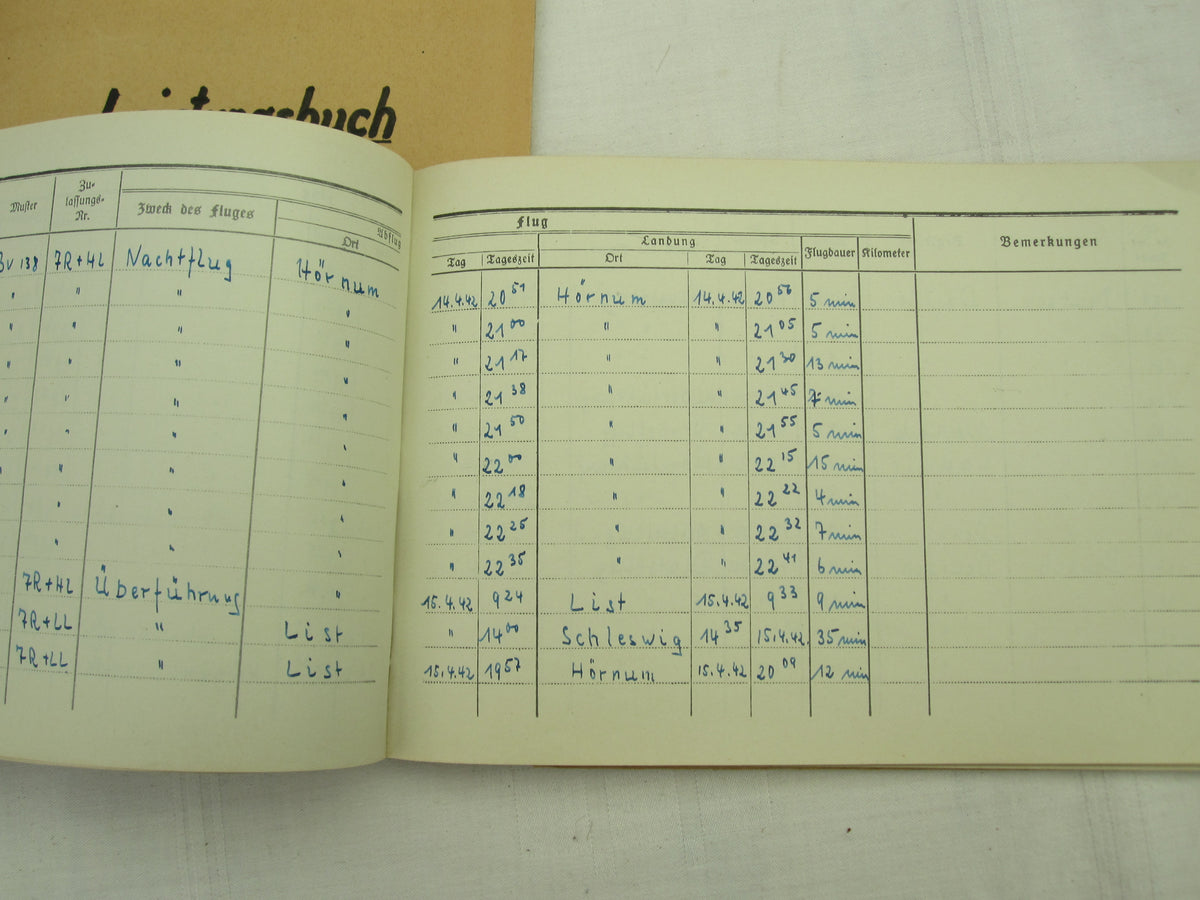 Leistungsbuch
Muster
Zu-
lassungs-
Nr.
Zweck des Fluges
Abflug
Ort
Bv 138 7R+HL Nachtflug Hörnum
" " " "
" " " "
" " " "
" " " "
" " " "
" " " "
" " "
" " "
7R+HL Überführung "
7R+LL " List
7R+LL " List
Flug
Landung
Bemerkungen
Tag Tageszeit Ort Tag Tageszeit Flugdauer Kilometer
14.4.42 20 51 Hörnum 14.4.42 20 56 5 min
" 21 00 " " 21 05 5 min
" 21 17 " " 21 30 13 min
" 21 38 " " 21 45 7 min
" 21 50 " " 21 55 5 min
" 22 00 " " 22 15 15 min
" 22 18 " " 22 22 4 min
" 22 25 " " 22 32 7 min
" 22 35 " " 22 41 6 min
15.4.42 9 24 List 15.4.42 9 33 9 min
" 14 00 Schleswig 14 35 15.4.42. 35 min
15.4.42 19 57 Hörnum 15.4.42 20 09 12 min